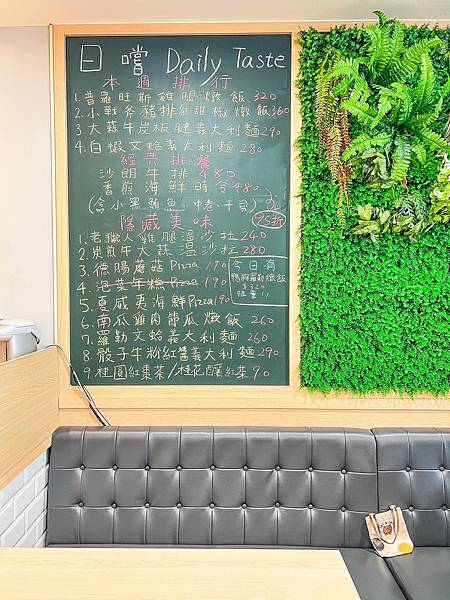 日嚐 Daily Taste
本週排行
1. 普羅旺斯雞腿燉飯 320
2. 小戰斧豬排紅甜椒燉飯 360
3. 大蒜牛炭板腱義大利麵 290
4. 白蝦文蛤義大利麵 280
經典排餐
沙朗牛排 480
香煎海鮮時令 480
(含小黑鮪魚、中卷、干貝)
95折
隱藏美味
1. 老獵人雞腿溫沙拉 240
2. 炭煎牛大蔬溫沙拉 280
3. 德腸蘑菇Pizza 190
4. 泡菜年糕Pizza 190
5. 夏威夷海鮮Pizza 190
6. 南瓜雞肉節瓜燉飯 260
7. 羅勒文蛤義大利麵 260
8. 骰子牛粉紅醬義大利麵 290
9. 桂圓紅棗茶/桂花釀紅茶 90
今日有
燉飯
$320
限量!!